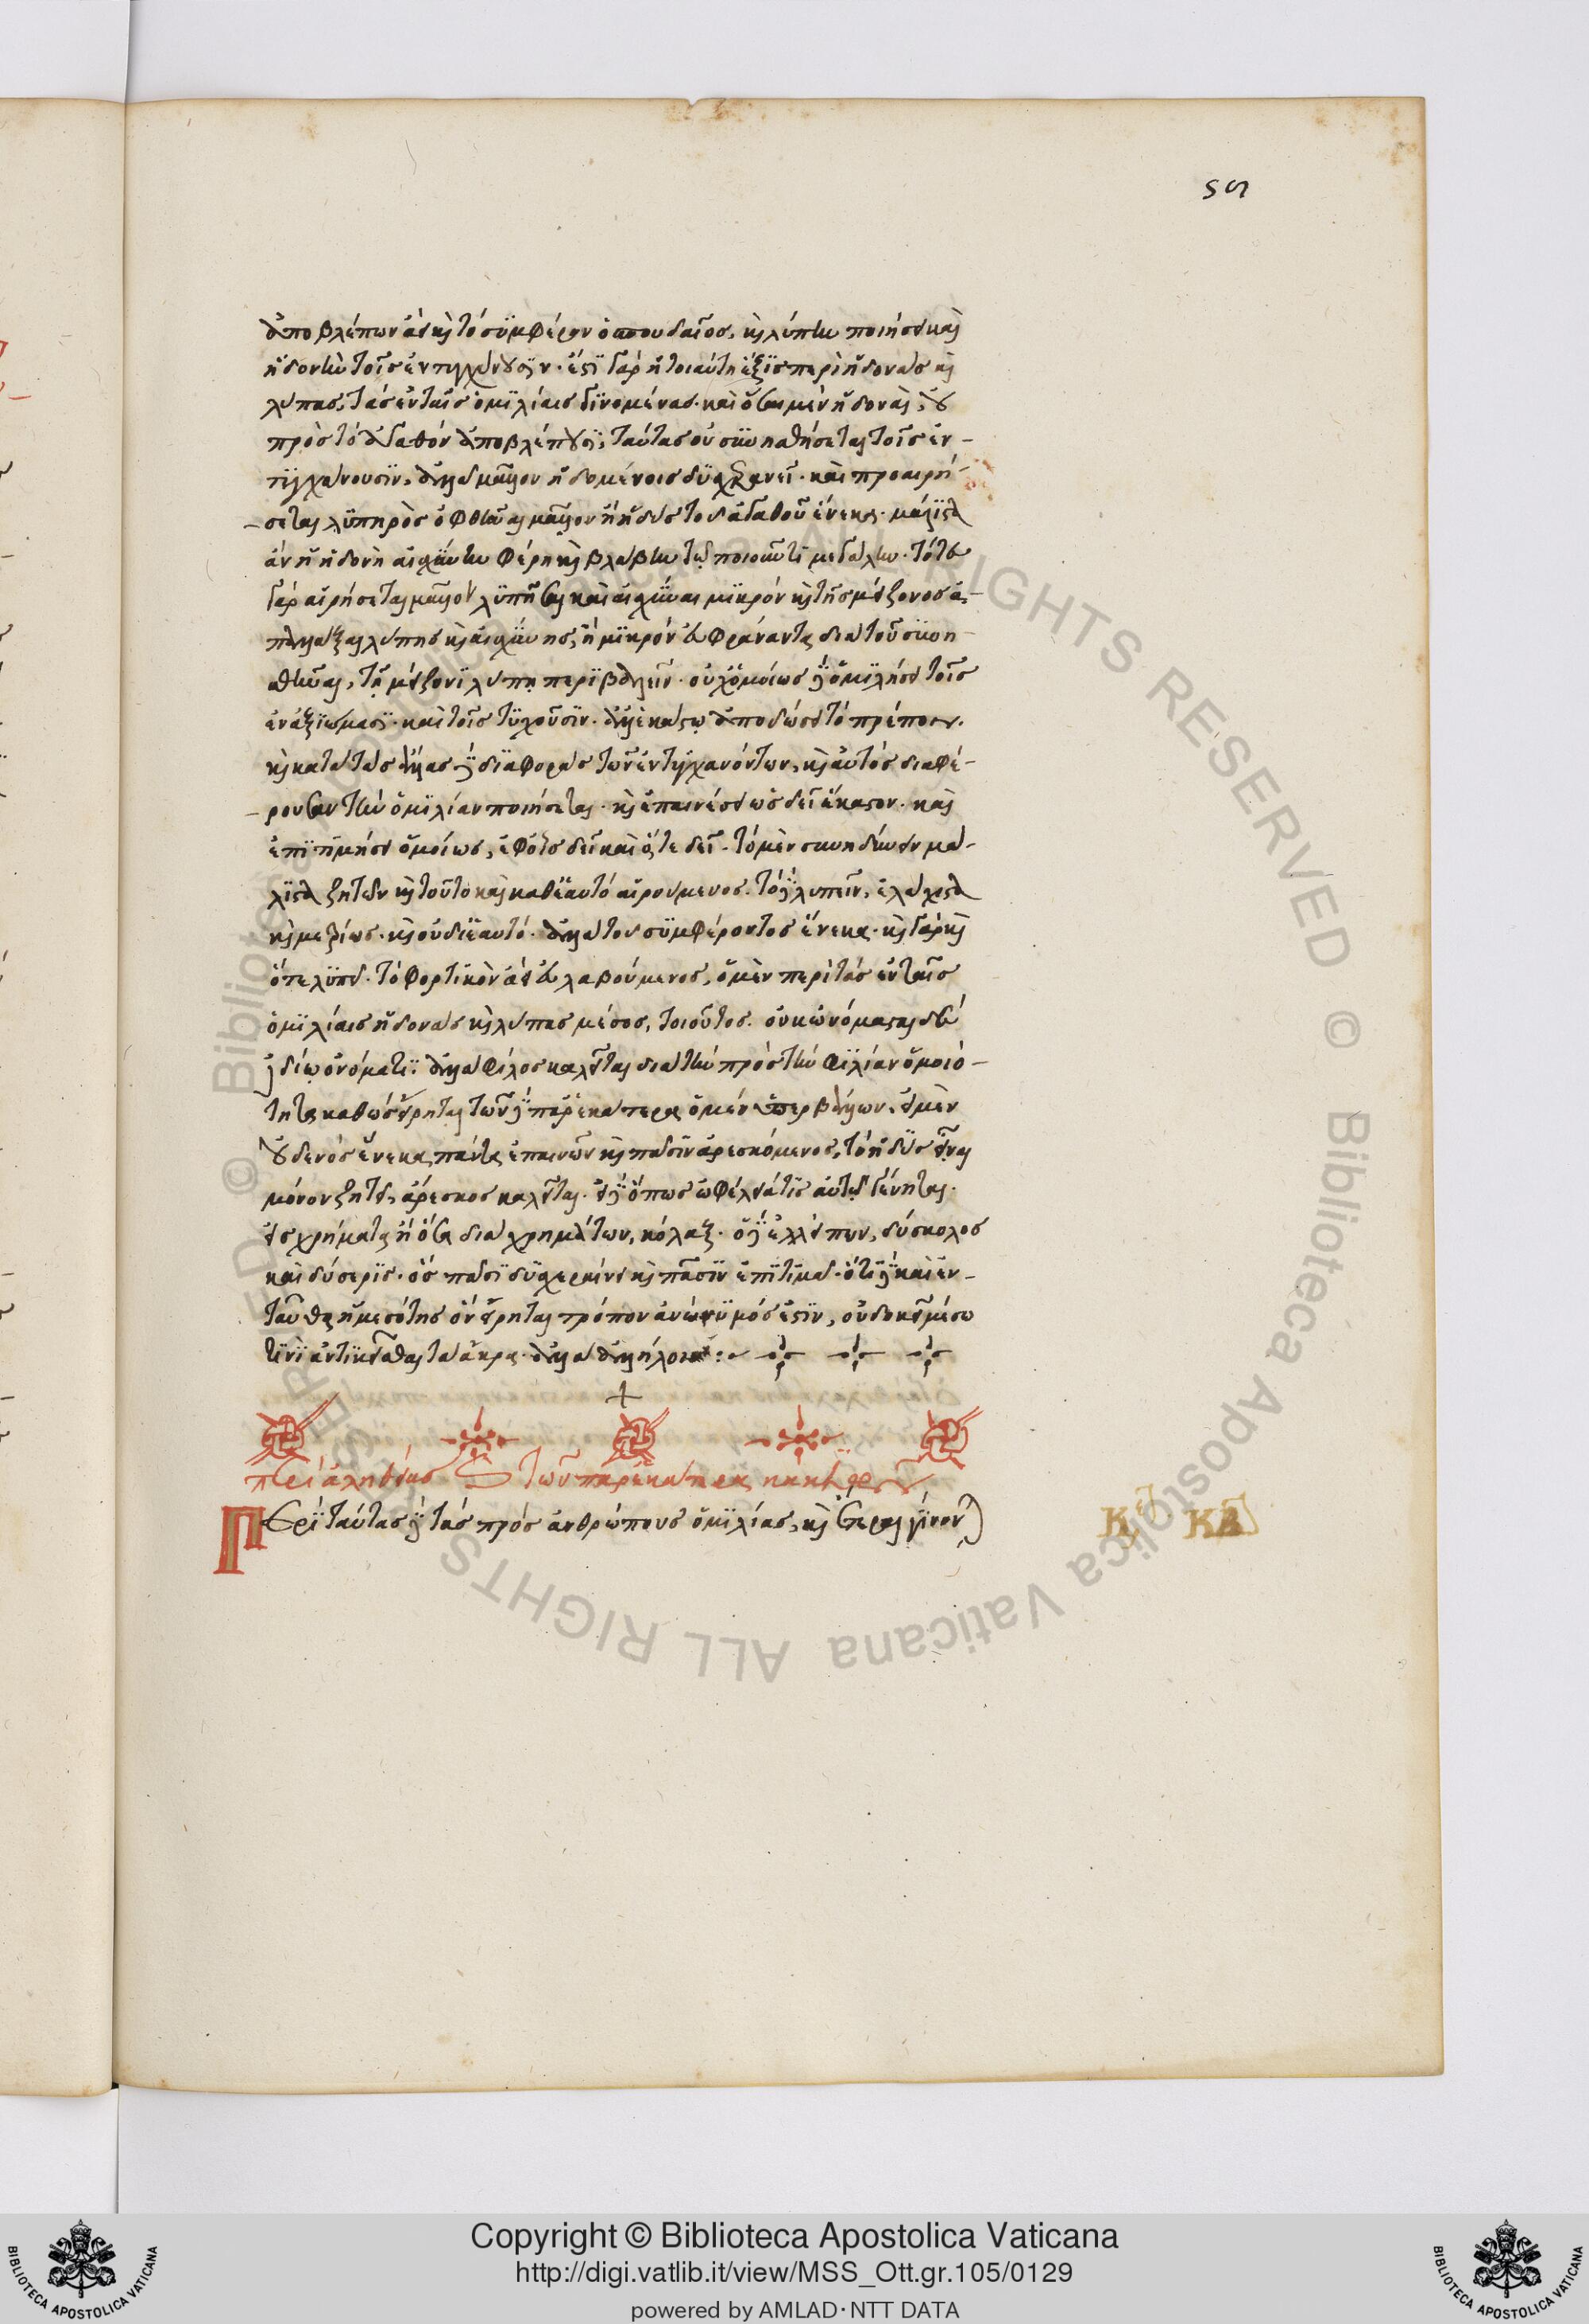 ςη
ἀποβλέπων ἀεὶ καὶ τὸ συμφέρον ὁ σπουδαῖος, καὶ λύπην ποιήσει καὶ
ἡδονὴν τοῖς ἐντυγχάνουσιν. ἔστι γὰρ ἡ τοιαύτη ἕξις περὶ ἡδονὰς καὶ
λύπας, τὰς ἐν ταῖς ὁμιλίαις γινομένας. καὶ ὅσαι μὲν ἡδοναὶ, οὐ
πρὸς τὸ ἀγαθὸν ἀποβλέπουσι, ταύτας οὐ συνηθήσεται τοῖς ἐν-
τυγχάνουσιν, ἀλλὰ μᾶλλον ἡδομένοις δυσχερανεῖ. καὶ προαιρή-
σεται λυπηρὸς ὀφθῆναι μᾶλλον ἢ ἡδὺς τοῦ ἀγαθοῦ ἕνεκα. μάλιστα
ἂν ἡ ἡδονὴ αἰσχύνην φέρῃ καὶ βλάβην τῷ ποιοῦντι μεγάλην. τότε
γὰρ αἱρήσεται μᾶλλον λυπῆσαι καὶ αἰσχῦναι μικρὸν καὶ τῆς μείζονος ἀ-
παλλάξαι λύπης καὶ αἰσχύνης, ἢ μικρὸν εὐφράναντα διὰ τοῦ συνη-
σθῆναι, τῇ μείζονι λύπῃ περιβαλεῖν. οὐχ ὁμοίως δὲ ὁμιλήσει τοῖς
ἐν ἀξιώμασι. καὶ τοῖς τυχοῦσιν. ἀλλ' ἑκάστῳ ἀποδώσει τὸ πρέπον.
καὶ κατὰ τὰς ἄλλας δὲ διαφορὰς τῶν ἐντυγχανόντων, καὶ αὐτὸς διαφέ-
ρουσαν τὴν ὁμιλίαν ποιήσεται. καὶ ἐπαινέσει ὡς δεῖ ἕκαστον. καὶ
ἐπιτιμήσει ὁμοίως, ἐφ' οἷς δεῖ καὶ ὅτε δεῖ. τὸ μὲν συνηδύνειν μά-
λιστα ζητῶν καὶ τοῦτο καὶ καθ' ἑαυτὸ αἱρούμενος. τὸ δὲ λυπεῖν, ἐλάχιστα
καὶ μετρίως. καὶ οὐ δι' ἑαυτό. ἀλλὰ τοῦ συμφέροντος ἕνεκα. καὶ γὰρ καὶ
ὅτε λυπεῖ. τὸ φορτικὸν ἀεὶ εὐλαβούμενος, ὁ μὲν περὶ τὰς ἐν ταῖς
ὁμιλίαις ἡδονὰς καὶ λύπας μέσος, τοιοῦτος. οὐκ ὠνόμασται δὲ
ἰδίῳ ὀνόματι. ἀλλὰ φίλος καλεῖται διὰ τὴν πρὸς τὴν φιλίαν ὁμοιό-
τητα καθὼς εἴρηται, τῶν δὲ παρ' ἑκάτερα ὁ μὲν ὑπερβάλλων, εἰ μὲν
οὐδενὸς ἕνεκα πάντα ἐπαινῶν καὶ πᾶσιν ἀρεσκόμενος, τὸ ἡδὺς εἶναι
μόνον ζητεῖ, ἄρεσκος καλεῖται. εἰ δὲ ὅπως ὠφέλειά τις αὐτῷ γένηται
εἰς χρήματα ἢ ὅσα διὰ χρημάτων, κόλαξ. ὁ δὲ ἐλλείπων, δύσκολος
καὶ δύσερις. ὃς πᾶσι δυσχεραίνει καὶ πᾶσιν ἐπιτιμᾷ. ὅτι δὲ καὶ ἐν-
ταῦθα ἡ μεσότης ὃν εἴρηται τρόπον ἀνώνυμός ἐστιν, οὐ δοκεῖ μέσῳ
τινὶ ἀντικεῖσθαι τὰ ἄκρα. ἀλλὰ ἀλλήλοις:
περὶ ἀληθείας καὶ τῶν παρ' ἑκάτερα κακιῶν
Περὶ ταύτας δὲ τὰς πρὸς ἀνθρώπους ὁμιλίας, καὶ ἕτεραι γίνον
Copyright © Biblioteca Apostolica Vaticana
http://digi.vatlib.it/view/MSS_Ott.gr.105/0129
powered by AMLAD·NTT DATA